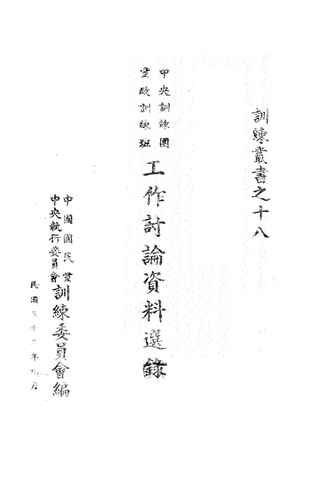 訓練叢書之十八
中央訓練團
黨政訓練班
工作討論資料選錄
中國國民黨
中央執行委員會
訓練委員會編
民國年月